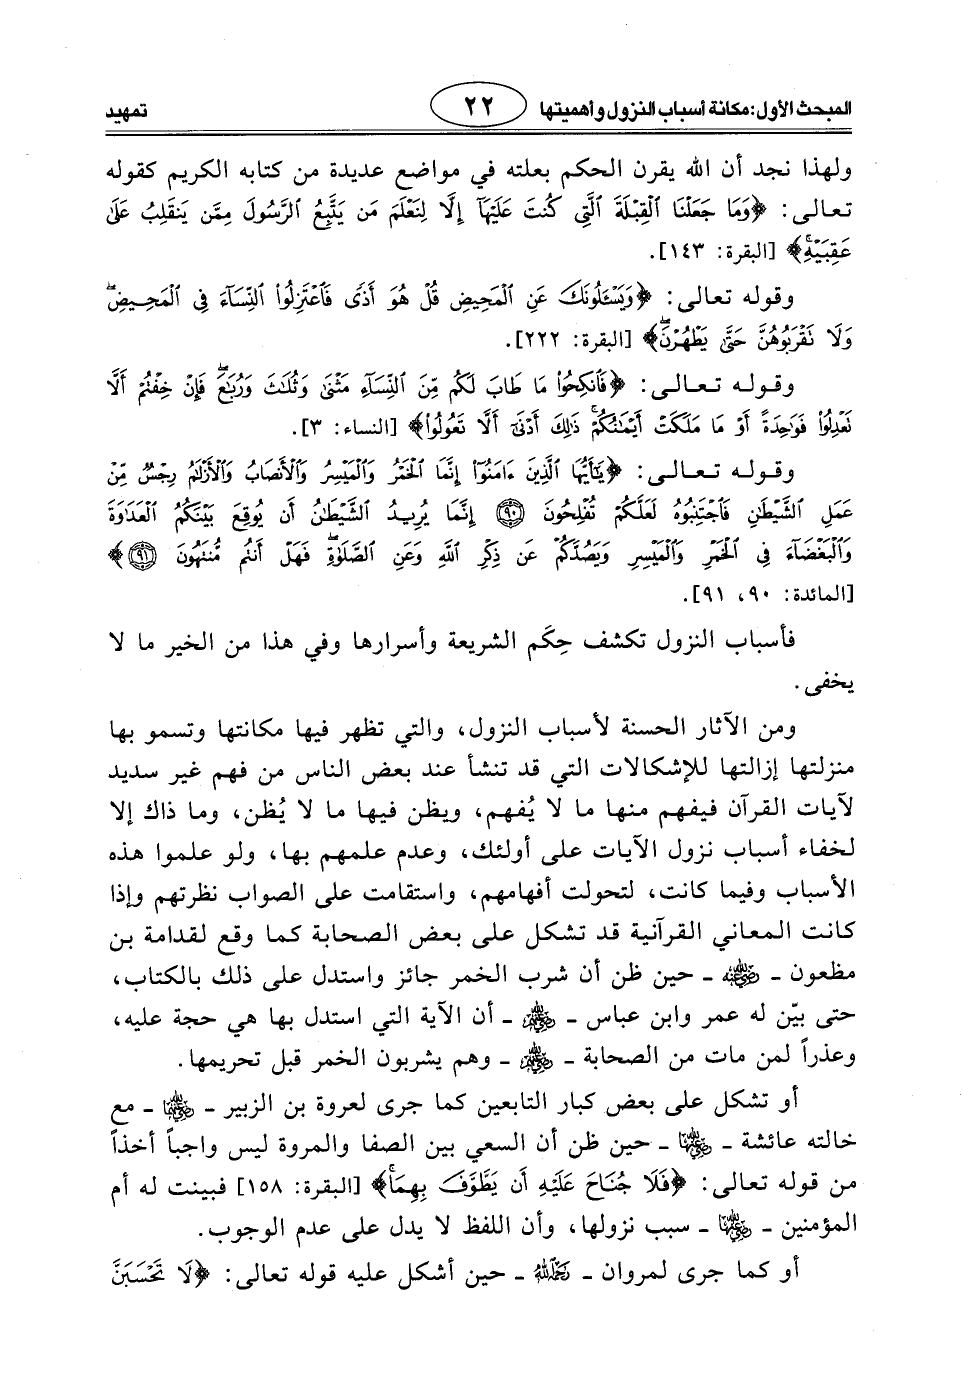 المبحث الأول: مكانة أسباب النزول وأهميتها ٢٢ تمهيد
ولهذا نجد أن الله يقرن الحكم بعلته في مواضع عديدة من كتابه الكريم كقوله
تعالى: ﴿وَمَا جَعَلْنَا ٱلْقِبْلَةَ ٱلَّتِي كُنتَ عَلَيْهَآ إِلَّا لِنَعْلَمَ مَن يَتَّبِعُ ٱلرَّسُولَ مِمَّن يَنقَلِبُ عَلَىٰ
عَقِبَيْهِۚ﴾ [البقرة: ١٤٣].
وقوله تعالى: ﴿وَيَسْـَٔلُونَكَ عَنِ ٱلْمَحِيضِ قُلْ هُوَ أَذًى فَٱعْتَزِلُوا۟ ٱلنِّسَآءَ فِي ٱلْمَحِيضِۖ
وَلَا تَقْرَبُوهُنَّ حَتَّىٰ يَطْهُرْنَۖ﴾ [البقرة: ٢٢٢].
وقوله تعالى: ﴿فَٱنكِحُوا۟ مَا طَابَ لَكُم مِّنَ ٱلنِّسَآءِ مَثْنَىٰ وَثُلَٰثَ وَرُبَٰعَۖ فَإِنْ خِفْتُمْ أَلَّا
تَعْدِلُوا۟ فَوَٰحِدَةً أَوْ مَا مَلَكَتْ أَيْمَٰنُكُمْۚ ذَٰلِكَ أَدْنَىٰٓ أَلَّا تَعُولُوا۟﴾ [النساء: ٣].
وقوله تعالى: ﴿يَٰٓأَيُّهَا ٱلَّذِينَ ءَامَنُوٓا۟ إِنَّمَا ٱلْخَمْرُ وَٱلْمَيْسِرُ وَٱلْأَنصَابُ وَٱلْأَزْلَٰمُ رِجْسٌ مِّنْ
عَمَلِ ٱلشَّيْطَٰنِ فَٱجْتَنِبُوهُ لَعَلَّكُمْ تُفْلِحُونَ ٩٠ إِنَّمَا يُرِيدُ ٱلشَّيْطَٰنُ أَن يُوقِعَ بَيْنَكُمُ ٱلْعَدَٰوَةَ
وَٱلْبَغْضَآءَ فِي ٱلْخَمْرِ وَٱلْمَيْسِرِ وَيَصُدَّكُمْ عَن ذِكْرِ ٱللَّهِ وَعَنِ ٱلصَّلَوٰةِۖ فَهَلْ أَنتُم مُّنتَهُونَ ٩١﴾
[المائدة: ٩٠، ٩١].
فأسباب النزول تكشف حِكَم الشريعة وأسرارها وفي هذا من الخير ما لا
يخفى.
ومن الآثار الحسنة لأسباب النزول، والتي تظهر فيها مكانتها وتسمو بها
منزلتها إزالتها للإشكالات التي قد تنشأ عند بعض الناس من فهم غير سديد
لآيات القرآن فيفهم منها ما لا يُفهم، ويظن فيها ما لا يُظن، وما ذاك إلا
لخفاء أسباب نزول الآيات على أولئك، وعدم علمهم بها، ولو علموا هذه
الأسباب وفيما كانت، لتحولت أفهامهم، واستقامت على الصواب نظرتهم وإذا
كانت المعاني القرآنية قد تشكل على بعض الصحابة كما وقع لقدامة بن
مظعون ـ رضي الله عنه ـ حين ظن أن شرب الخمر جائز واستدل على ذلك بالكتاب،
حتى بيّن له عمر وابن عباس ـ رضي الله عنهم ـ أن الآية التي استدل بها هي حجة عليه،
وعذراً لمن مات من الصحابة ـ رضي الله عنهم ـ وهم يشربون الخمر قبل تحريمها.
أو تشكل على بعض كبار التابعين كما جرى لعروة بن الزبير ـ رضي الله عنهما ـ مع
خالته عائشة ـ رضي الله عنها ـ حين ظن أن السعي بين الصفا والمروة ليس واجباً أخذاً
من قوله تعالى: ﴿فَلَا جُنَاحَ عَلَيْهِ أَن يَطَّوَّفَ بِهِمَاۚ﴾ [البقرة: ١٥٨] فبينت له أم
المؤمنين ـ رضي الله عنها ـ سبب نزولها، وأن اللفظ لا يدل على عدم الوجوب.
أو كما جرى لمروان ـ رحمه الله ـ حين أشكل عليه قوله تعالى: ﴿لَا تَحْسَبَنَّ